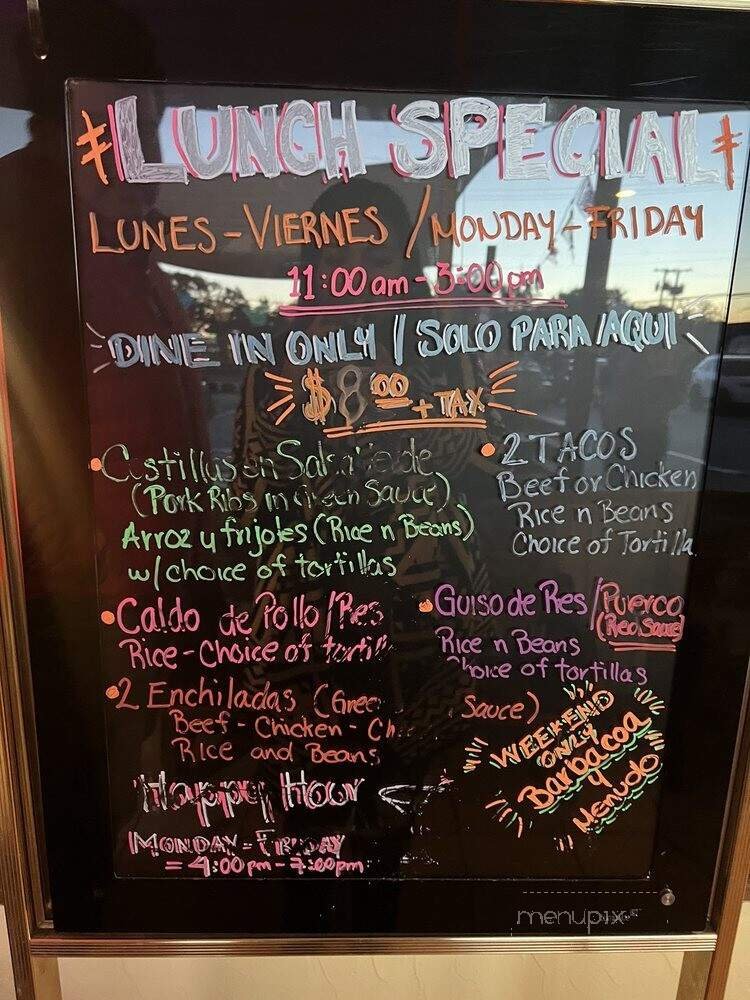 LUNCH SPECIAL
LUNES-VIERNES / MONDAY-FRIDAY
11:00 am - 3:00 pm
DINE IN ONLY / SOLO PARA AQUI
$8.00 + TAX
Costillas en Salsa Verde
(Pork Ribs in Green Sauce)
Arroz y frijoles (Rice n Beans)
w/choice of tortillas
2 TACOS
Beef or Chicken
Rice n Beans
Choice of Tortilla
Caldo de Pollo / Res
Rice - Choice of
Guiso de Res / Puerco
(Red Sauce)
Rice n Beans
Choice of tortillas
2 Enchiladas ( Sauce)
Beef - Chicken -
Rice and Beans
WEEKEND
ONLY
Barbacoa
y
Menudo
Happy Hour
MONDAY - FRIDAY
= 4:00 pm - 7:00 pm
menupix